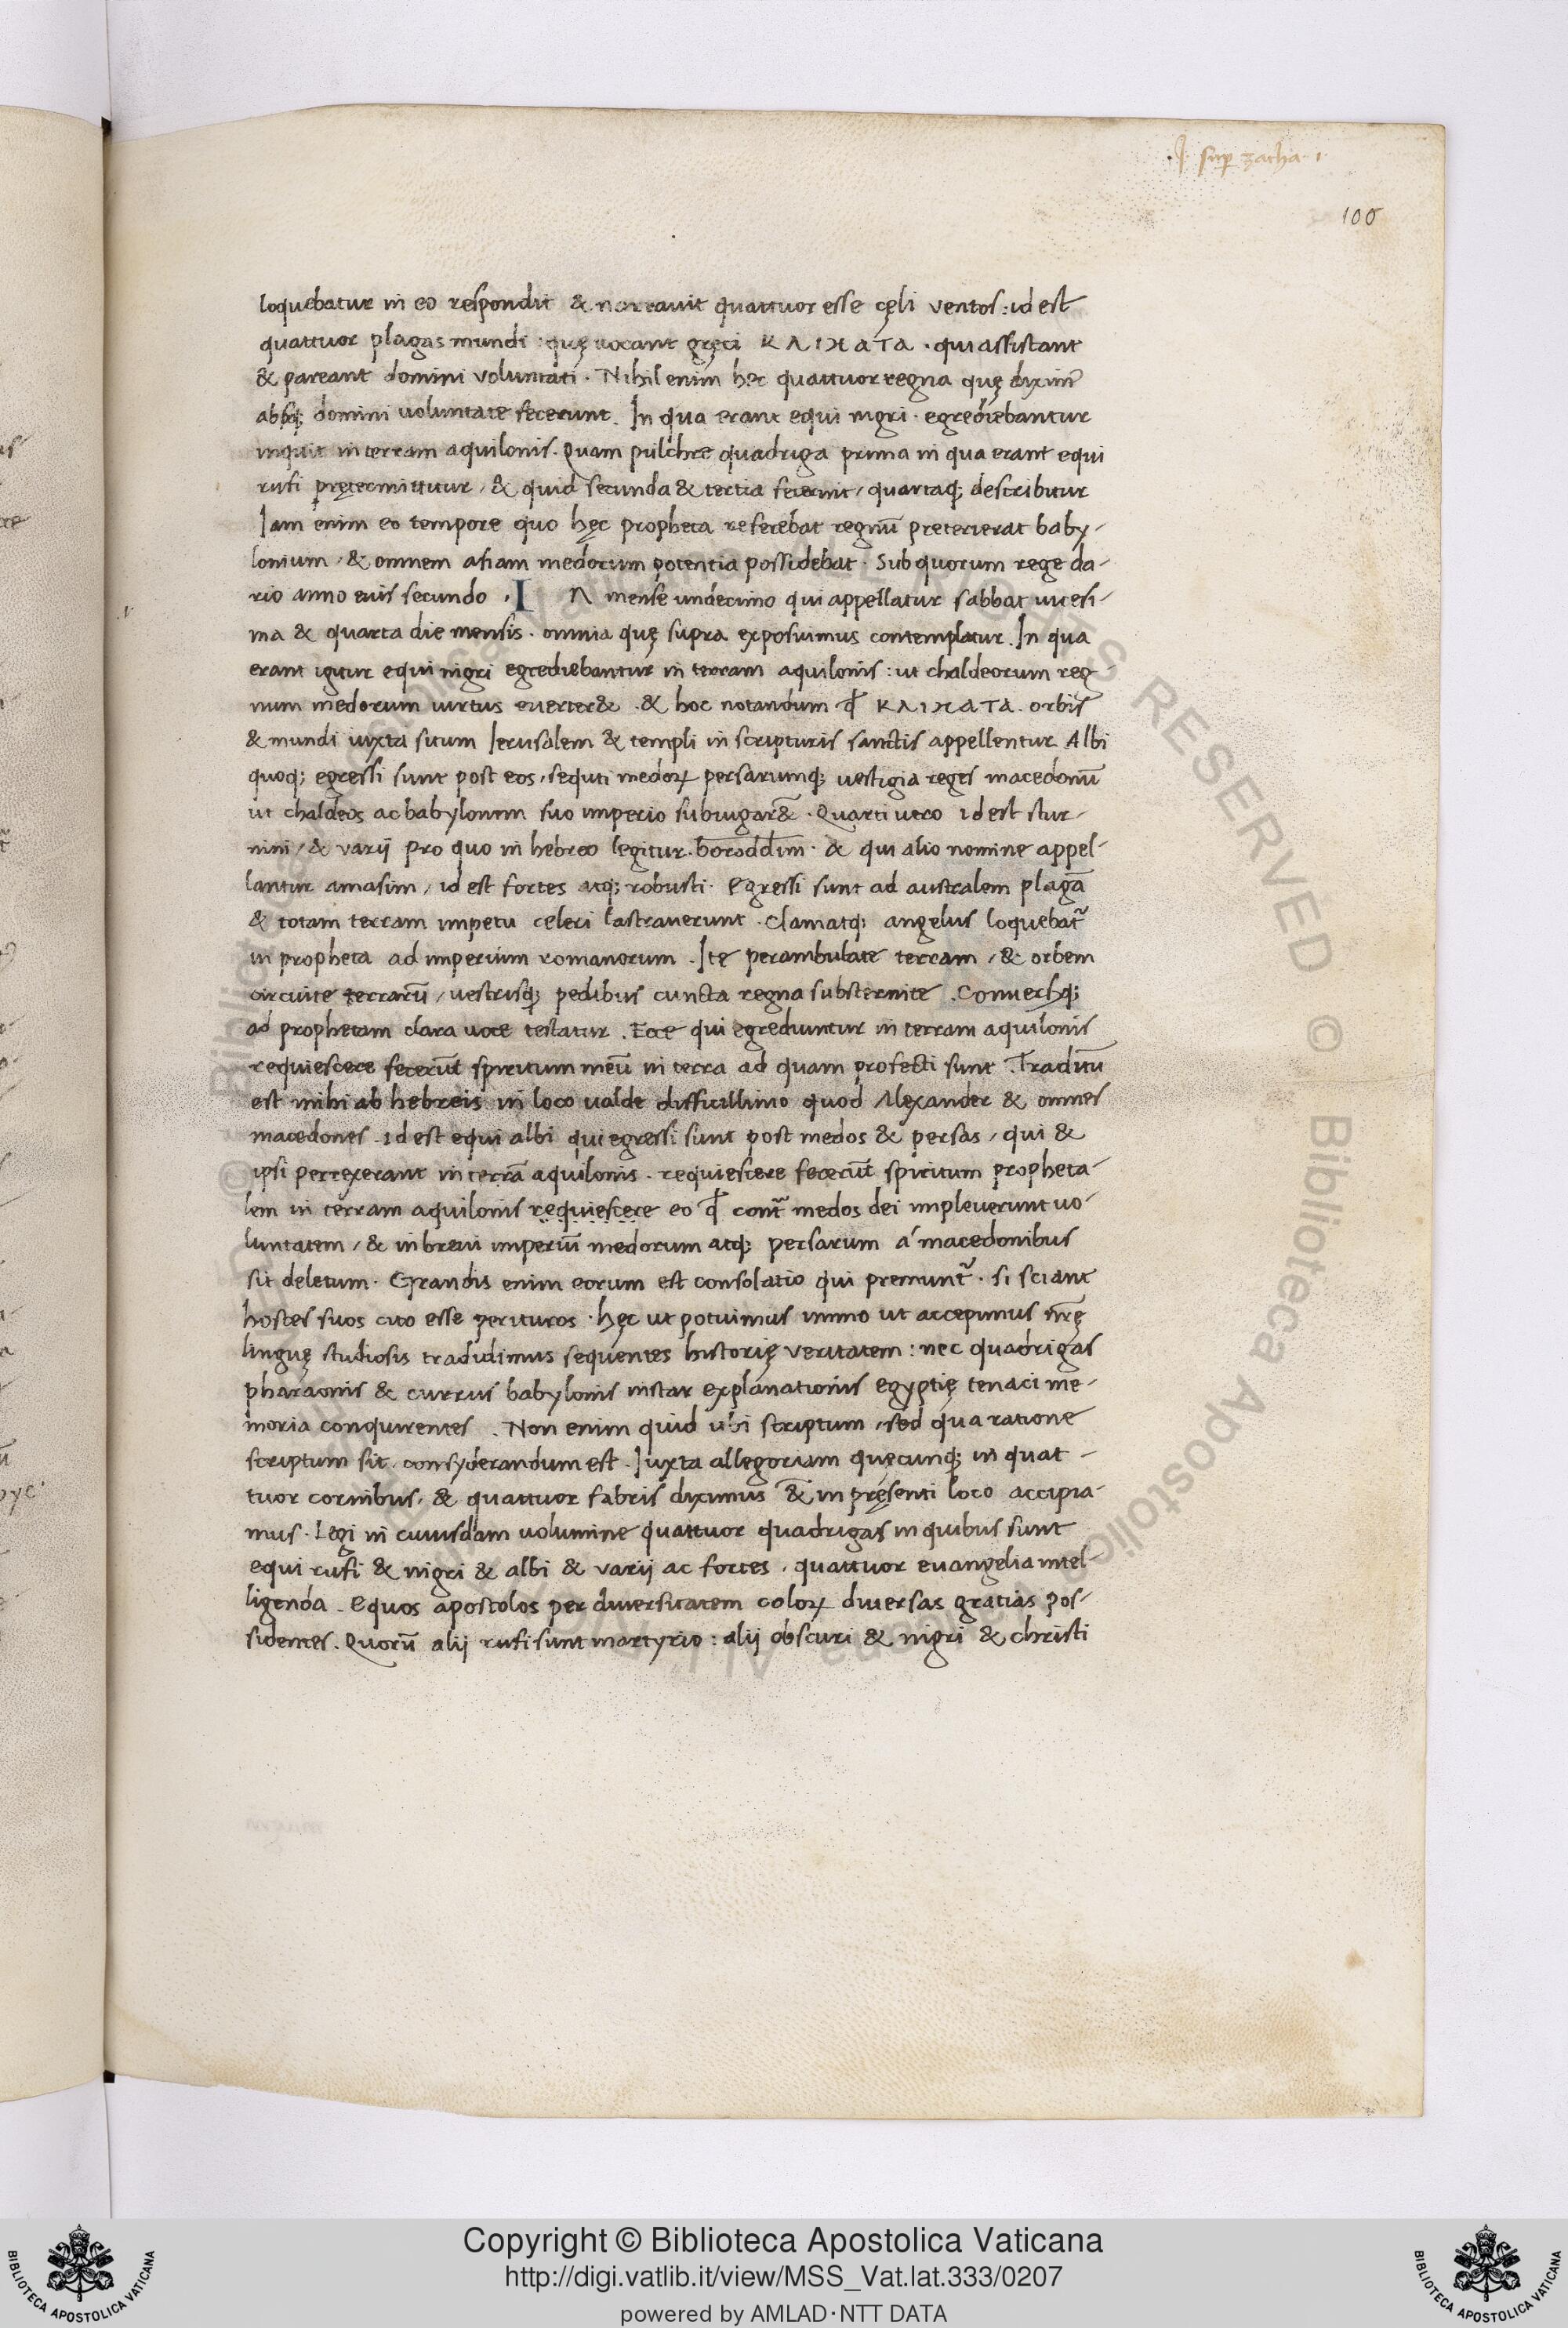 .J. sup zacha. 1.
100
loquebatur in eo respondit & narrauit quattuor esse cęli ventos: id est
quattuor plagas mundi: quę uocant gręci ΚΛΙΜΑΤΑ. qui assistant
& pareant domini voluntati. Nihil enim hęc quattuor regna quę diximꝰ
absq; domini uoluntate fecerunt. In qua erant equi nigri. egrediebantur
inquit in terram aquilonis. Quam pulchre quadriga prima in qua erant equi
rufi prętermittitur, & quid secunda & tertia fecerint, quartaq; describitur
Iam enim eo tempore quo hęc propheta referebat regnū preterierat baby-
lonium, & omnem asiam medorum potentia possidebat. Sub quorum rege da-
rio anno eius secundo. IN mense undecimo qui appellatur sabbat uicesi-
ma & quarta die mensis. omnia quę supra exposuimus contemplatur. In qua
erant igitur equi nigri egrediebantur in terram aquilonis: ut chaldeorum reg-
num medorum uirtus euerter&. & hoc notandum ꝙ ΚΛΙΜΑΤΑ. orbis
& mundi iuxta situm Ierusalem & templi in scripturis sanctis appellentur Albi
quoq; egressi sunt post eos, sequti medoꝝ persarumq; uestigia reges macedonū
ut chaldeos ac babylonem suo imperio subiugar&̄. Quarti uero id est stur-
nini, & varij pro quo in hebreo legitur. boroddim. & qui alio nomine appel-
lantur amasim, id est fortes atq; robusti. Egressi sunt ad australem plagā
& totam terram impetu celeri lastrauerunt. Clamatq; angelus loquebat᷑
in propheta ad imperium romanorum. Ite perambulate terram, & orbem
circuite terrarū, uestrisq; pedibus cuncta regna substernite. Conuersusq;
ad prophetam clara uoce testatur. Ecce qui egrediuntur in terram aquilonis
requiescere fecerūt spiritum meū in terra ad quam profecti sunt. Traditū
est mihi ab hebreis in loco ualde difficillimo quod Alexander & omnes
macedones. id est equi albi qui egressi sunt post medos & persas, qui &
ipsi perrexerant in terrā aquilonis. requiescere fecerūt spiritum propheta-
lem in terram aquilonis requiescere eo ꝙ cont᷑ medos dei impleuerunt uo-
luntatem, & in breui imperiū medorum atq; persarum á macedonibus
sit deletum. Grandis enim eorum est consolatio qui premunt᷑. si sciant
hostes suos cito esse perituros. hęc ut potuimus immo ut accepimus nr̄ę
linguę studiosis tradidimus sequentes historię veritatem: nec quadrigas
pharaonis & currus babylonis instar explanationis egyptię tenaci me-
moria conquirentes. Non enim quid ubi scriptum, sed qua ratione
scriptum sit, consyderandum est. Iuxta allegoriam quęcunq; in quat-
tuor cornibus, & quattuor fabris diximus &̄ in pręsenti loco accipia-
mus. Legi in cuiusdam uolumine quattuor quadrigas in quibus sunt
equi rufi & nigri & albi & varij ac fortes. quattuor euangelia intel-
ligenda. Equos apostolos per diuersitatem coloꝝ diuersas gratias pos-
sidentes. Quorū alij rufi sunt martyrio: alij obscuri & nigri & christi
Copyright © Biblioteca Apostolica Vaticana
http://digi.vatlib.it/view/MSS_Vat.lat.333/0207
powered by AMLAD·NTT DATA